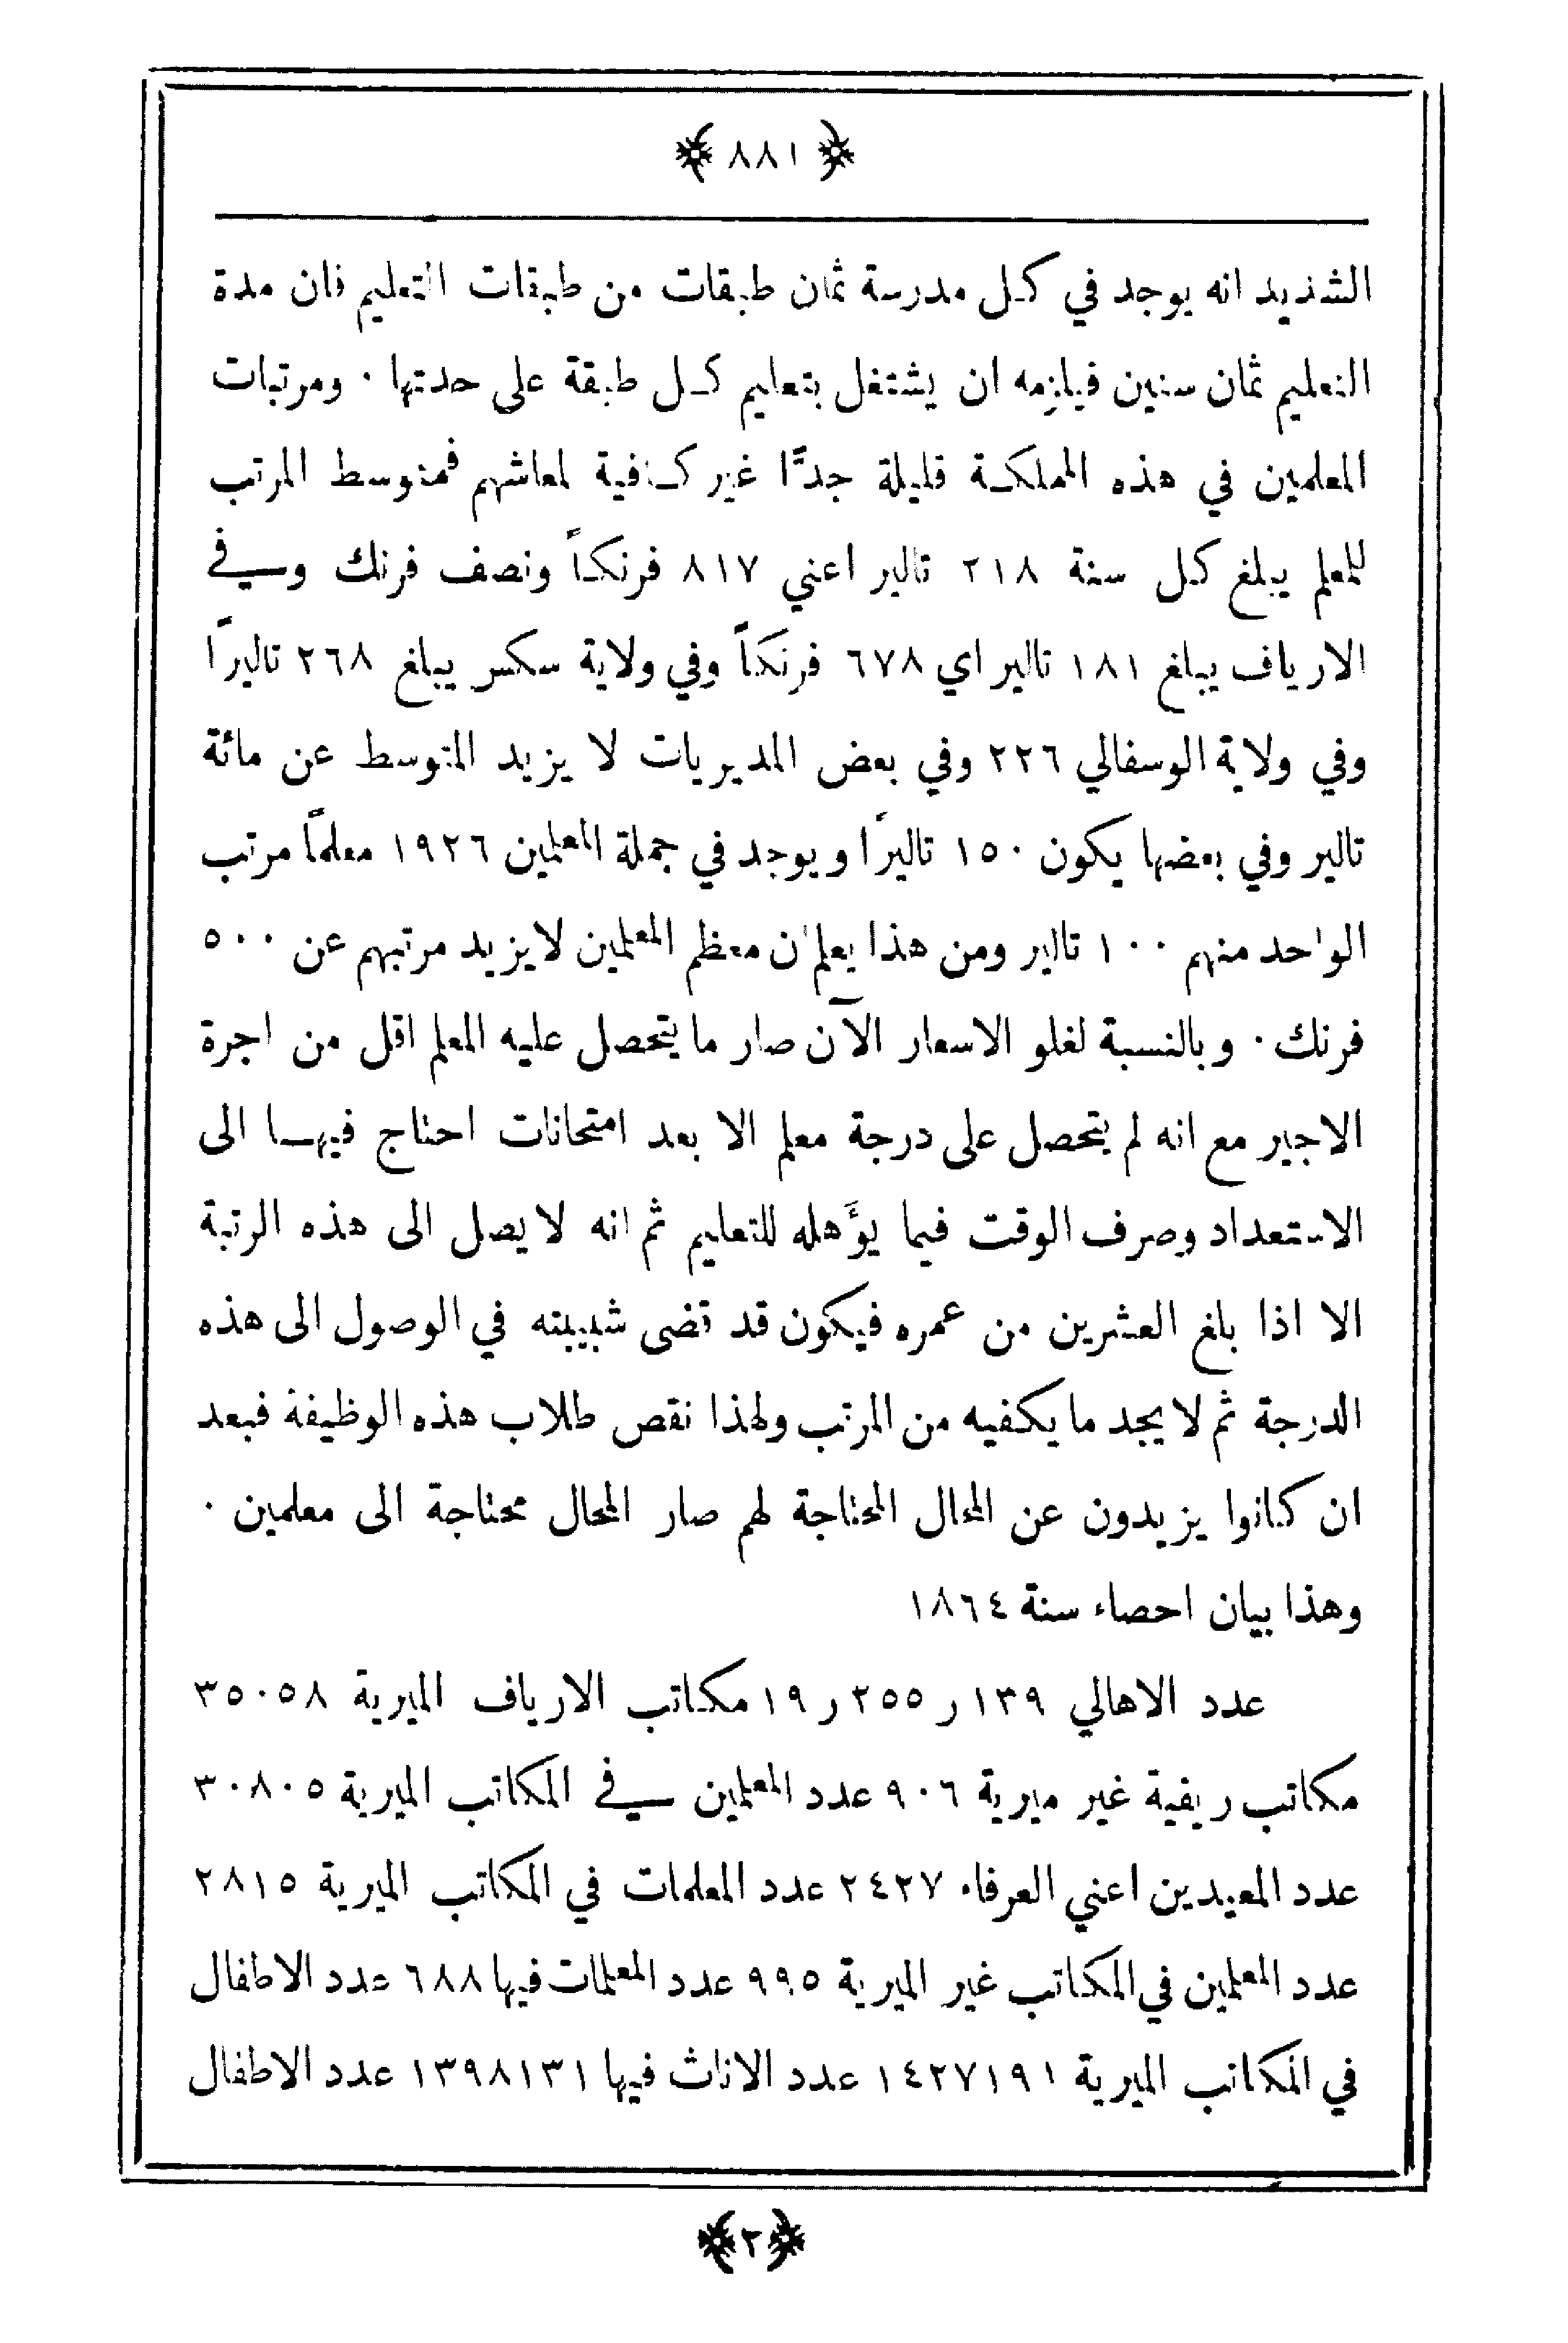 ﴿ ٨٨١ ﴾
الشديد انه يوجد في كل مدرسة ثمان طبقات من طبقات التعليم فان مدة
التعليم ثمان سنين فيلزمه ان يشتغل بتعليم كل طبقة على حدتها · ومرتبات
المعلمين في هذه المملكة قليلة جدًّا غير كافية لمعاشهم فمتوسط المرتب
للمعلم يبلغ كل سنة ٢١٨ تالير اعني ٨١٧ فرنكاً ونصف فرنك وفي
الارياف يبلغ ١٨١ تالير اي ٦٧٨ فرنكاً وفي ولاية سكس يبلغ ٢٦٨ تاليرًا
وفي ولاية الوسفالي ٢٢٦ وفي بعض المديريات لا يزيد المتوسط عن مائة
تالير وفي بعضها يكون ١٥٠ تاليرًا ويوجد في جملة المعلمين ١٩٢٦ معلماً مرتب
الواحد منهم ١٠٠ تالير ومن هذا يعلم ان معظم المعلمين لا يزيد مرتبهم عن ٥٠٠
فرنك · وبالنسبة لغلو الاسعار الآن صار ما يتحصل عليه المعلم اقل من اجرة
الاجير مع انه لم يتحصل على درجة معلم الا بعد امتحانات احتاج فيها الى
الاستعداد وصرف الوقت فيما يؤَهله للتعليم ثم انه لا يصل الى هذه الرتبة
الا اذا بلغ العشرين من عمره فيكون قد قضى شبيبته في الوصول الى هذه
الدرجة ثم لا يجد ما يكفيه من المرتب ولهذا نقص طلاب هذه الوظيفة فبعد
ان كانوا يزيدون عن المحال المحتاجة لهم صار المحال محتاجة الى معلمين ·
وهذا بيان احصاء سنة ١٨٦٤
عدد الاهالي ١٣٩ ر ٢٥٥ ر ١٩ مكاتب الارياف الميرية ٣٥٠٥٨
مكاتب ريفية غير ميرية ٩٠٦ عدد المعلمين في المكاتب الميرية ٣٠٨٠٥
عدد المعيدين اعني العرفاء ٢٤٢٧ عدد المعلمات في المكاتب الميرية ٢٨١٥
عدد المعلمين في المكاتب غير الميرية ٩٩٥ عدد المعلمات فيها ٦٨٨ عدد الاطفال
في المكاتب الميرية ١٤٢٧١٩١ عدد الاناث فيها ١٣٩٨١٣١ عدد الاطفال
﴿٢﴾